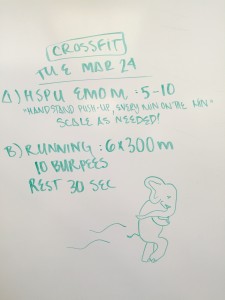 CROSSFIT
TUE MAR 24
A) HSPU EMOM : 5-10
"HANDSTAND PUSH-UP, EVERY MIN ON THE MIN"
SCALE AS NEEDED!
B) RUNNING : 6 x 300m
10 BURPEES
REST 30 SEC